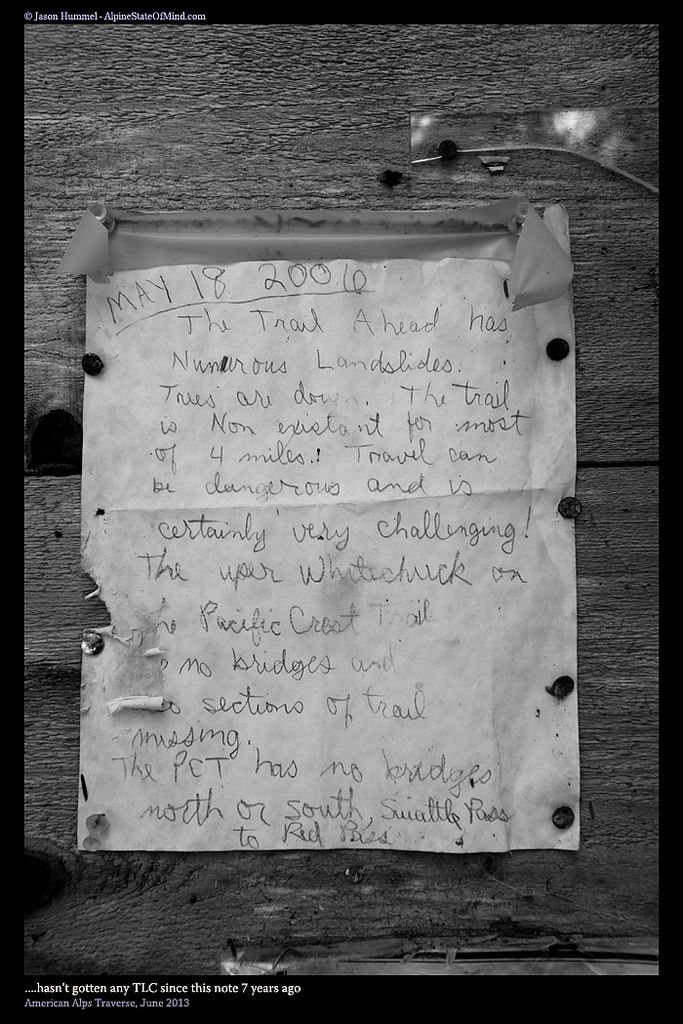 © Jason Hummel - AlpineStateOfMind.com
MAY 18 2006
The Trail Ahead has
Numurous Landslides.
Trees are down. The trail
is Non existant for most
of 4 miles.! Travel can
be dangerous and is
certainly very challenging!
The uper Whitechuck on
he Pacific Crest Trail
no bridges and
sections of trail
missing.
The PCT has no bridges
north or south, Suiattle Pass
to Red Pass
....hasn't gotten any TLC since this note 7 years ago
American Alps Traverse, June 2013